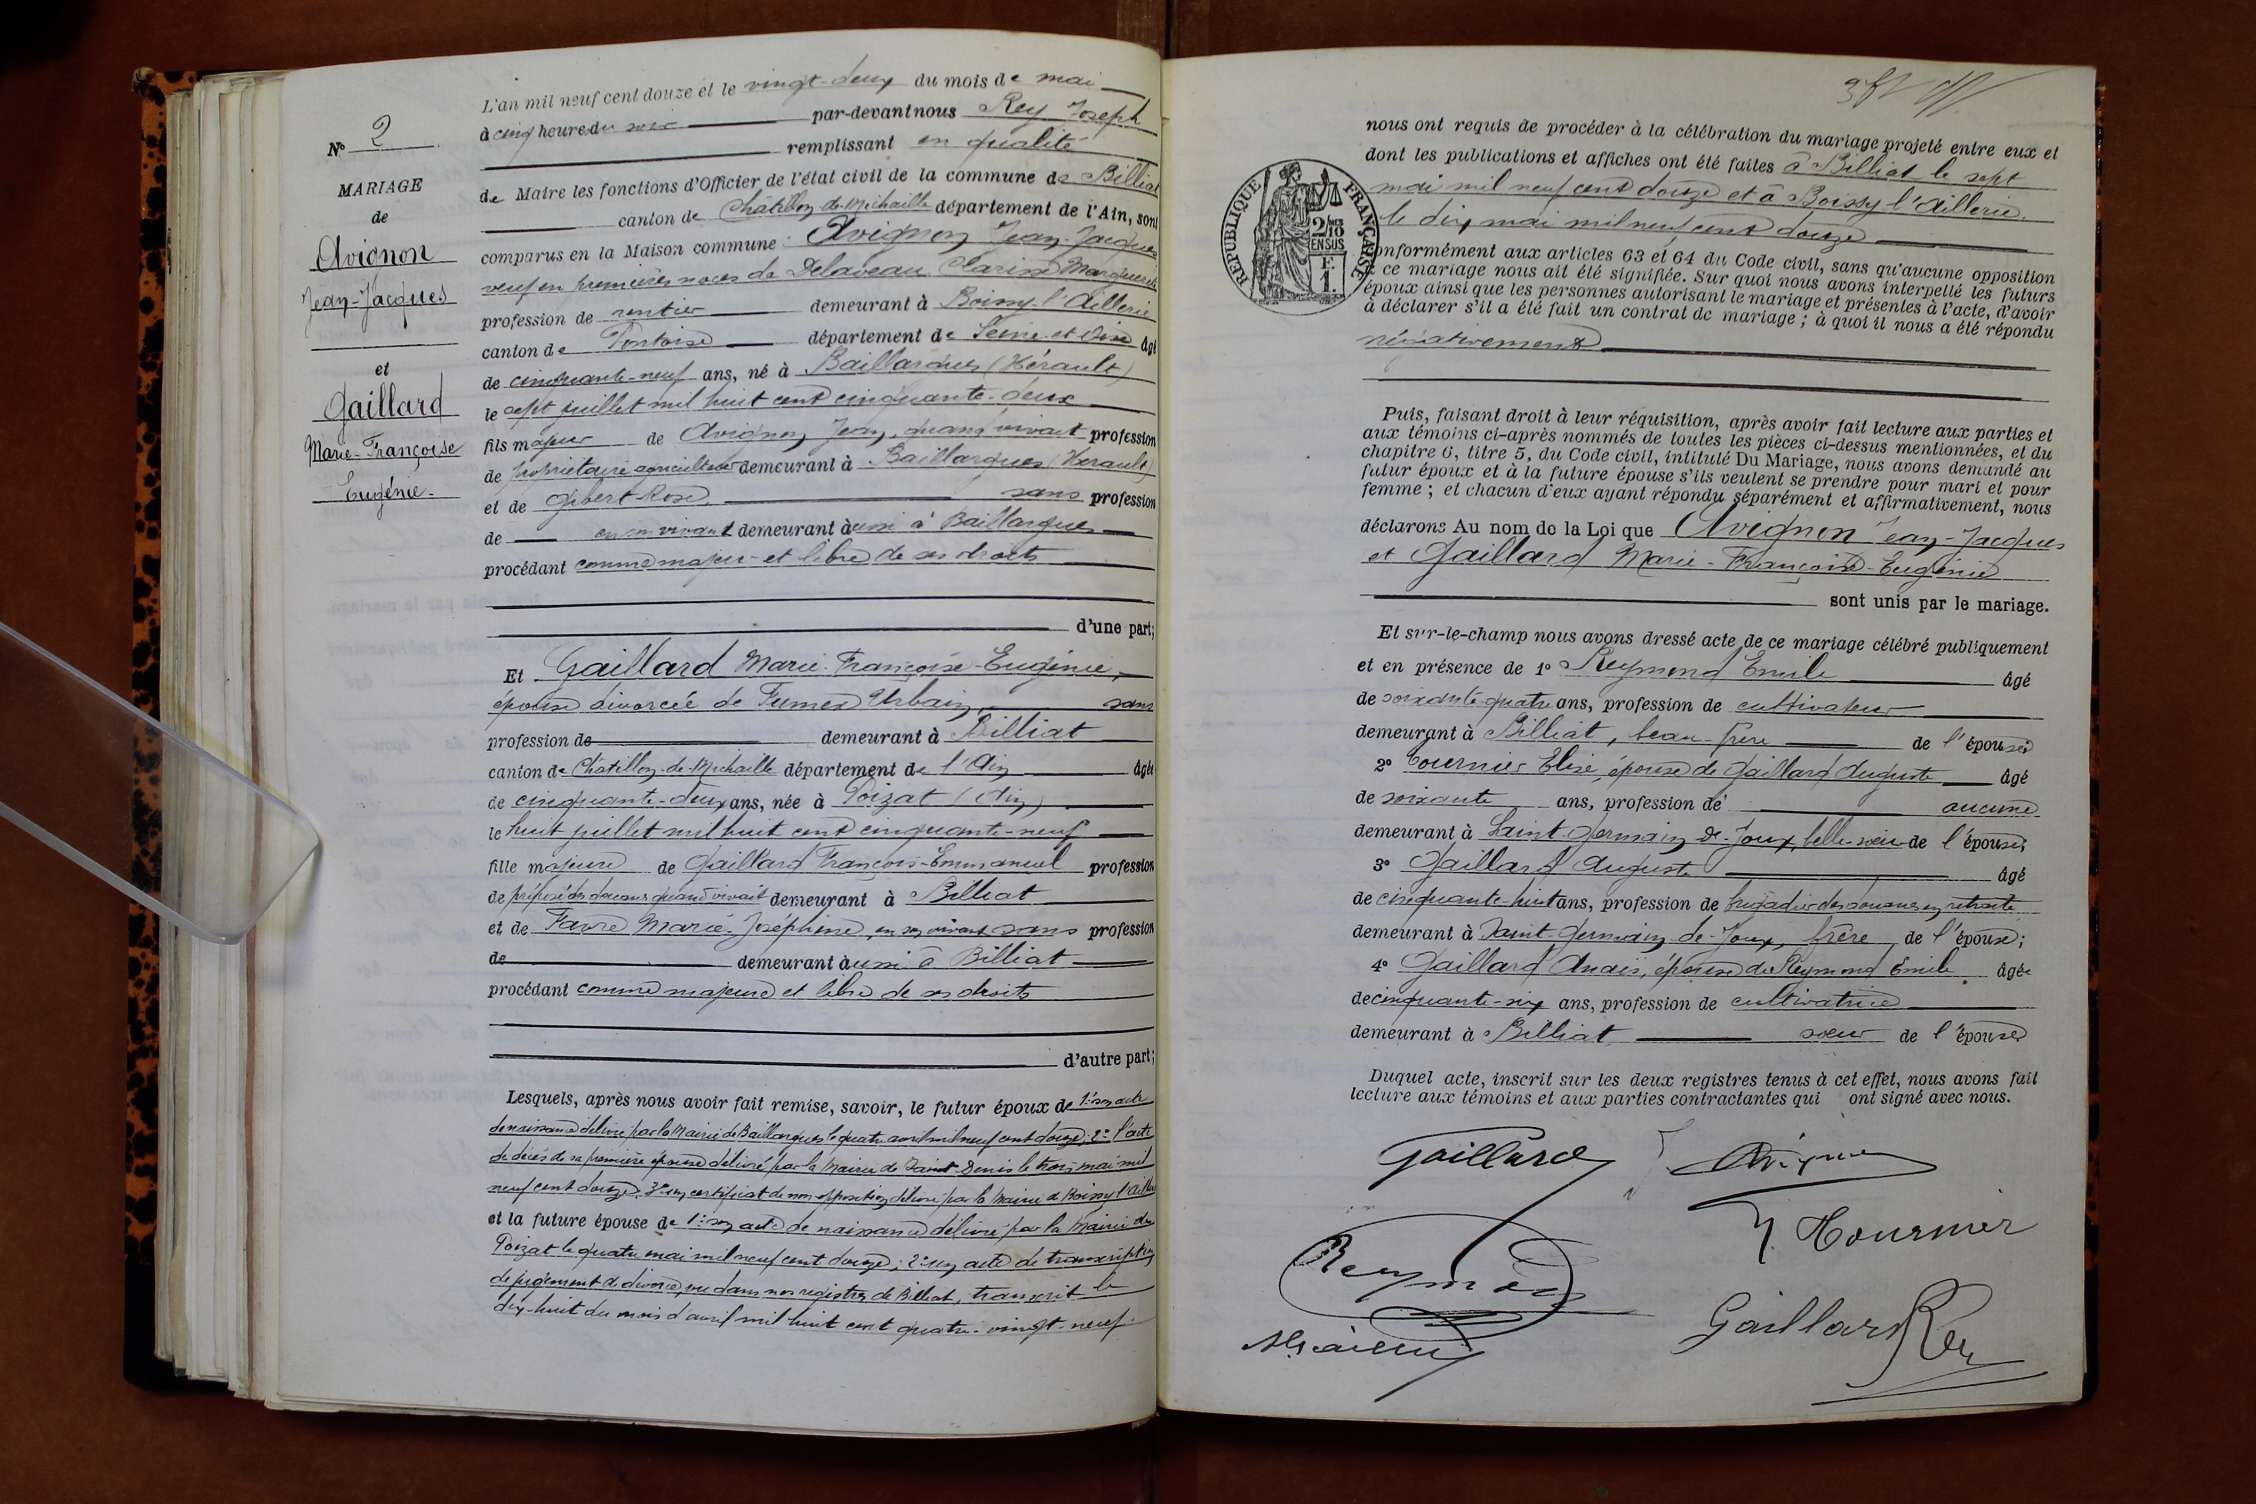 L'an mil neuf cent douze et le vingt-deux du mois de mai
à cinq heures du soir par-devant nous Rey Joseph
remplissant en qualité
de Maire les fonctions d'Officier de l'état civil de la commune de Billiat
canton de Châtillon-de-Michaille département de l'Ain, sont
comparus en la Maison commune : Avignon Jean-Jacques
veuf en premières noces de Delaveau Clarisse Marguerite
profession de rentier demeurant à Boissy-l'Aillerie
canton de Pontoise département de Seine-et-Oise âgé
de cinquante-neuf ans, né à Baillargues (Hérault)
le sept juillet mil huit cent cinquante-deux
fils majeur de Avignon Jean, quand vivait profession
de propriétaire agriculteur demeurant à Baillargues (Hérault)
et de Gibert Rose sans profession
de en son vivant demeurant aussi à Baillargues
procédant comme majeur et libre de ses droits
d'une part;
N° 2
MARIAGE
de
Avignon
Jean-Jacques
et
Gaillard
Marie-Françoise
Eugénie.
Et Gaillard Marie-Françoise-Eugénie,
épouse divorcée de Fumex Urbain, sans
profession de demeurant à Billiat
canton de Châtillon-de-Michaille département de l'Ain âgée
de cinquante-deux ans, née à Poizat (Ain)
le huit juillet mil huit cent cinquante-neuf
fille majeure de Gaillard François-Emmanuel profession
de préposé des douanes quand vivait demeurant à Billiat
et de Favre Marie-Joséphine, en son vivant sans profession
de demeurant aussi à Billiat
procédant comme majeure et libre de ses droits
d'autre part;
Lesquels, après nous avoir fait remise, savoir, le futur époux de 1° son acte
de naissance délivré par la Mairie de Baillargues le quatre avril mil neuf cent douze; 2° l'acte
de décès de sa première épouse délivré par la Mairie de Saint-Denis le trois mai mil
neuf cent douze, 3° un certificat de non opposition délivré par la Mairie de Boissy l'Aillerie
et la future épouse de 1° son acte de naissance délivré par la Mairie du
Poizat le quatre mai mil neuf cent douze; 2° un acte de transcription
de jugement de divorce, vu dans nos registres de Billiat, transcrit le
dix-huit du mois d'avril mil huit cent quatre-vingt-neuf.
nous ont requis de procéder à la célébration du mariage projeté entre eux et
dont les publications et affiches ont été faites à Billiat le sept
mai mil neuf cent douze et à Boissy l'Aillerie
le dix mai mil neuf cent douze
conformément aux articles 63 et 64 du Code civil, sans qu'aucune opposition
à ce mariage nous ait été signifiée. Sur quoi nous avons interpellé les futurs
époux ainsi que les personnes autorisant le mariage et présentes à l'acte, d'avoir
à déclarer s'il a été fait un contrat de mariage ; à quoi il nous a été répondu
négativement
RÉPUBLIQUE FRANÇAISE
2/10
EN SUS
F.
1.
Puis, faisant droit à leur réquisition, après avoir fait lecture aux parties et
aux témoins ci-après nommés de toutes les pièces ci-dessus mentionnées, et du
chapitre 6, titre 5, du Code civil, intitulé Du Mariage, nous avons demandé au
futur époux et à la future épouse s'ils veulent se prendre pour mari et pour
femme ; et chacun d'eux ayant répondu séparément et affirmativement, nous
déclarons Au nom de la Loi que Avignon Jean-Jacques
et Gaillard Marie-Françoise-Eugénie
sont unis par le mariage.
Et sur-le-champ nous avons dressé acte de ce mariage célébré publiquement
et en présence de 1° Reymond Emile âgé
de soixante-quatre ans, profession de cultivateur
demeurant à Billiat, beau-frère de l'épouse
2° Tournier Elise, épouse de Gaillard Auguste âgé
de soixante ans, profession de aucune
demeurant à Saint-Germain-de-Joux, belle-sœur de l'épouse;
3° Gaillard Auguste âgé
de cinquante-huit ans, profession de brigadier des douanes en retraite
demeurant à Saint-Germain-de-Joux, frère de l'épouse;
4° Gaillard Anais, épouse de Reymond Emile âgée
de cinquante-six ans, profession de cultivatrice
demeurant à Billiat sœur de l'épouse
Duquel acte, inscrit sur les deux registres tenus à cet effet, nous avons fait
lecture aux témoins et aux parties contractantes qui ont signé avec nous.
Gaillard Avignon
Tournier
Reymond
Gaillard Rey